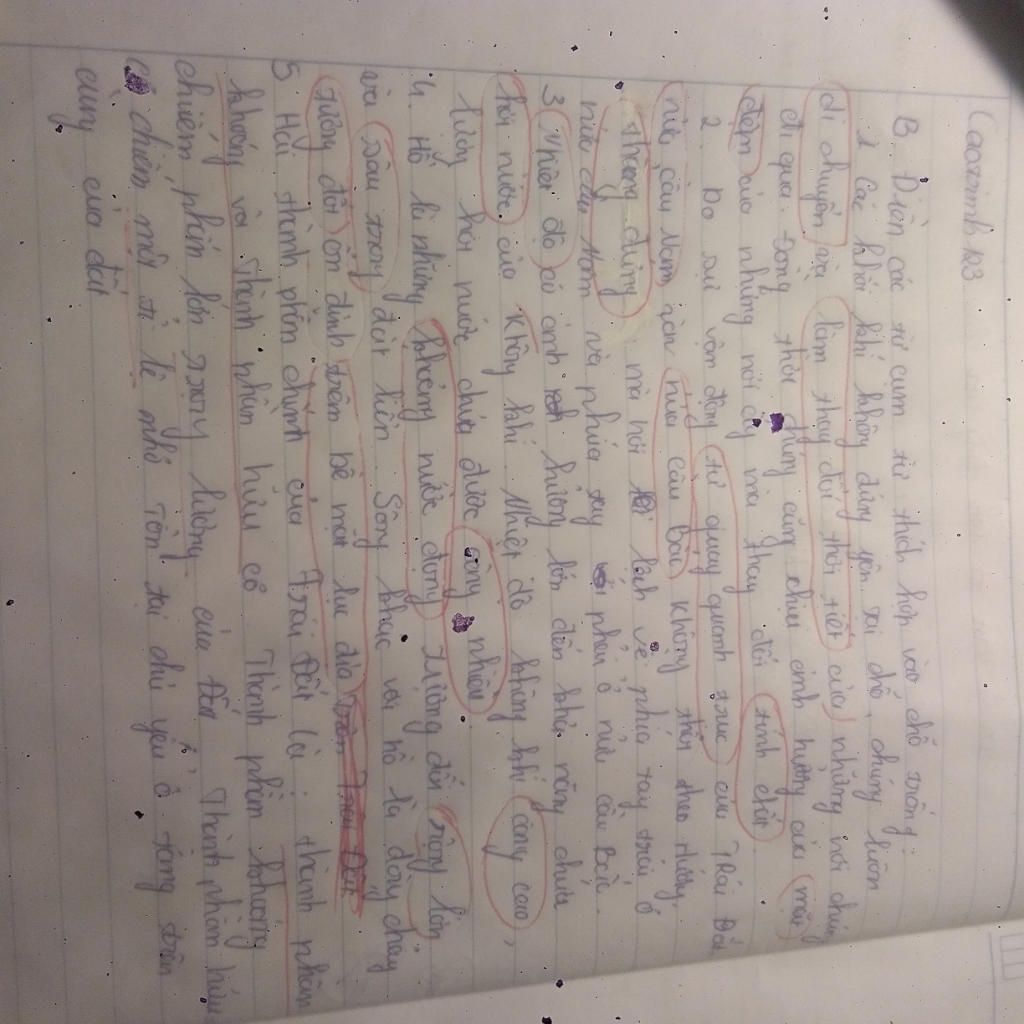 B. Điền các từ cụm từ thích hợp vào chỗ trống:
1 Các khối khí không đứng yên tại chỗ, chúng luôn
di chuyển và làm thay đổi thời tiết của những nơi chúng
đi qua. Đồng thời chúng cũng chịu ảnh hưởng của mặt
đệm của những nơi ấy mà thay đổi tính chất
2. Do sự vận động tự quay quanh trục của Trái Đất
nửa cầu Nam gần nửa cầu Bắc không thổi theo hướng
thẳng đứng mà hơi lệch về phía tay trái ở
nửa cầu Nam và phía tay phải ở nửa cầu Bắc.
3 Nhiệt độ có ảnh hưởng lớn đến khả năng chứa
hơi nước của không khí Nhiệt độ không khí càng cao,
lượng hơi nước chứa được càng nhiều
4. Hồ là những khoảng nước đọng tương đối rộng lớn
và sâu trong đất liền Sông khác với hồ là dòng chảy
tương đối ổn định trên bề mặt lục địa
5. Hai thành phần chính của Trái Đất là: thành phần
khoáng và Thành phần hữu cơ Thành phần khoáng
chiếm phần lớn trọng lượng của Thành phần hữu
cơ chiếm một tỉ lệ nhỏ Tồn tại chủ yếu ở tầng trên
cùng của đất